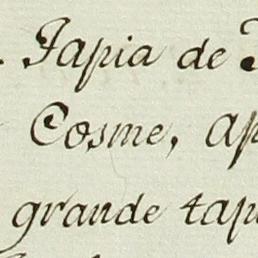 Tapia de
Cosme, ap
grande tap